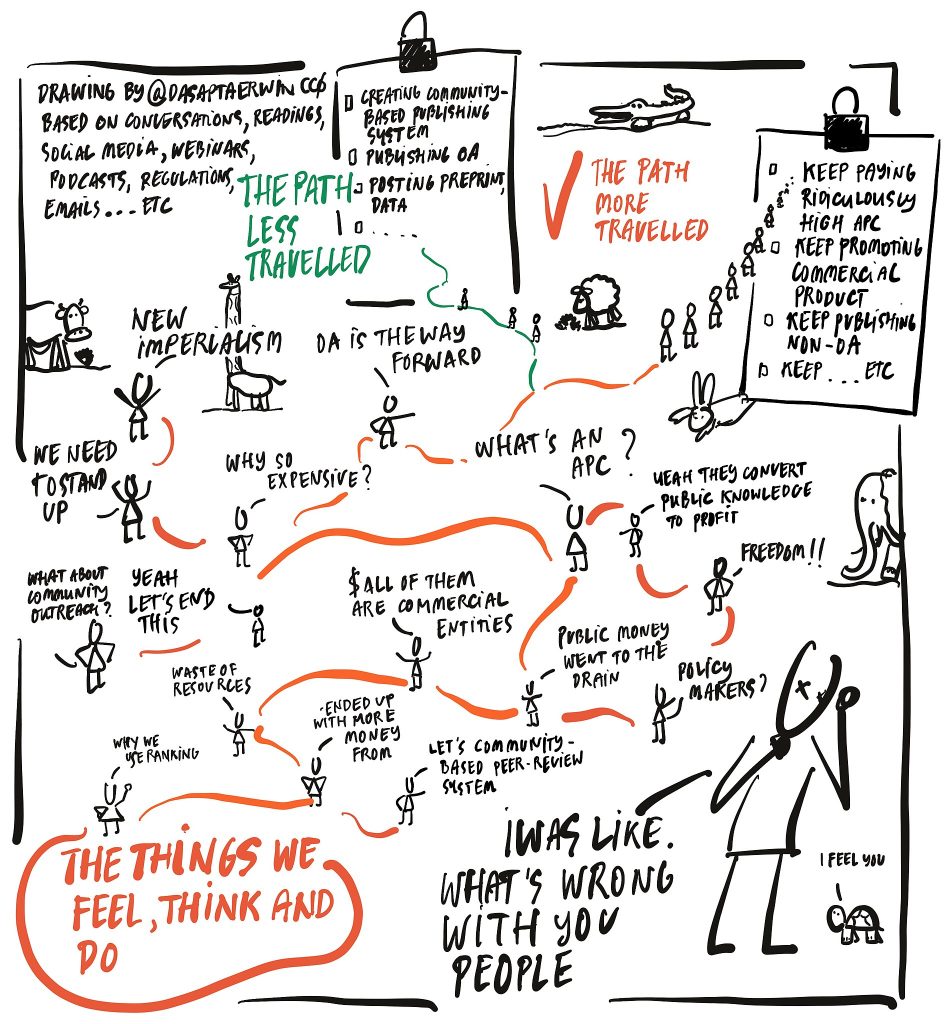 DRAWING BY @DASAPTAERWIN CC0
BASED ON CONVERSATIONS, READINGS,
SOCIAL MEDIA, WEBINARS,
PODCASTS, REGULATIONS,
EMAILS... ETC
CREATING COMMUNITY-
BASED PUBLISHING
SYSTEM
PUBLISHING OA
POSTING PREPRINT,
DATA
.....
THE PATH
LESS
TRAVELLED
THE PATH
MORE
TRAVELLED
KEEP PAYING
RIDICULOUSLY
HIGH APC
KEEP PROMOTING
COMMERCIAL
PRODUCT
KEEP PUBLISHING
NON-OA
KEEP .... ETC
NEW
IMPERIALISM
OA IS THE WAY
FORWARD
WE NEED
TO STAND
UP
WHY SO
EXPENSIVE?
WHAT'S AN
APC?
YEAH THEY CONVERT
PUBLIC KNOWLEDGE
TO PROFIT
FREEDOM!!
WHAT ABOUT
COMMUNITY
OUTREACH?
YEAH
LET'S END
THIS
$ALL OF THEM
ARE COMMERCIAL
ENTITIES
PUBLIC MONEY
WENT TO THE
DRAIN
POLICY
MAKERS?
WASTE OF
RESOURCES
ENDED UP
WITH MORE
MONEY
FROM
WHY WE
USE RANKING
LET'S COMMUNITY-
BASED PEER-REVIEW
SYSTEM
THE THINGS WE
FEEL, THINK AND
DO
I WAS LIKE.
WHAT'S WRONG
WITH YOU
PEOPLE
I FEEL YOU